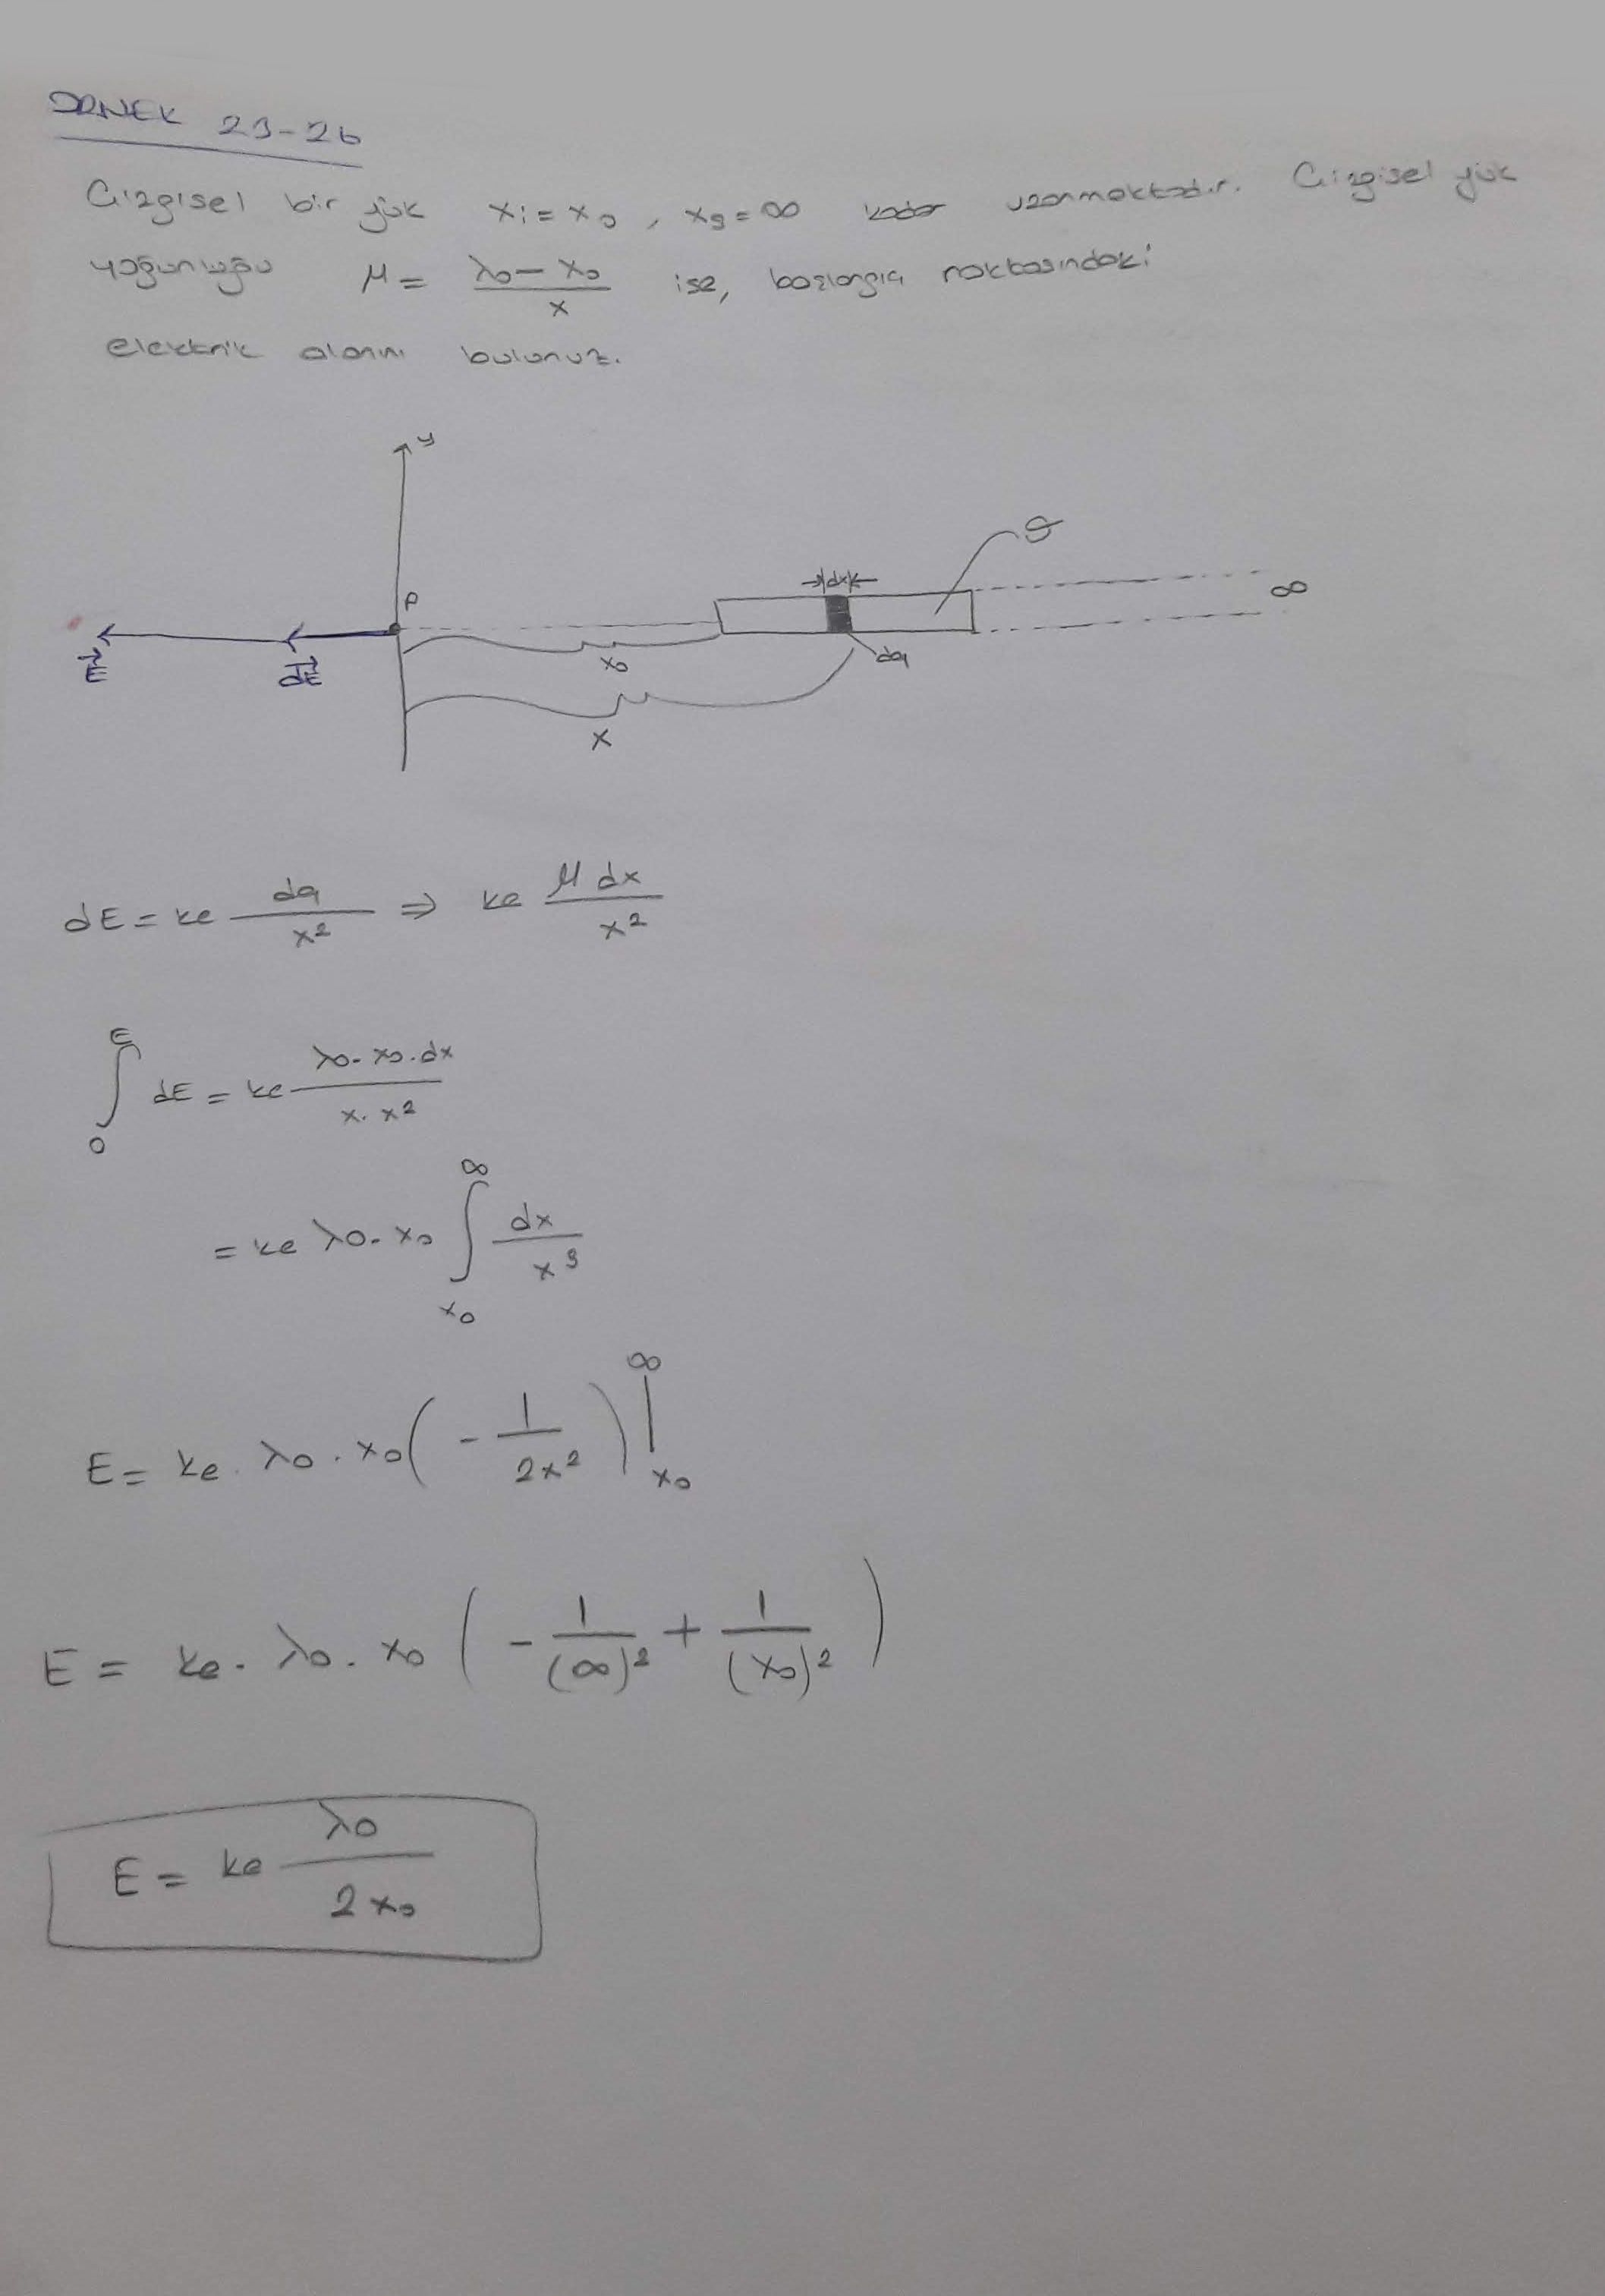 ÖRNEK 23-26
Çizgisel bir yük xi = x0 , xs = ∞ kadar uzanmaktadır. Çizgisel yük
yoğunluğu μ = λ0 - x0 / x ise, başlangıç noktasındaki
elektrik alanını bulunuz.
y
dx
P
∞
E dE x0 dq
x
dE = ke dq / x² ⇒ ke μ dx / x²
∫₀ᴱ dE = ke λ0 - x0 . dx / x . x²
= ke λ0 - x0 ∫ₓ₀^∞ dx / x³
E = ke . λ0 . x0 ( - 1 / 2x² ) |ₓ₀^∞
E = ke . λ0 . x0 ( - 1 / (∞)² + 1 / (x0)² )
E = ke λ0 / 2x0